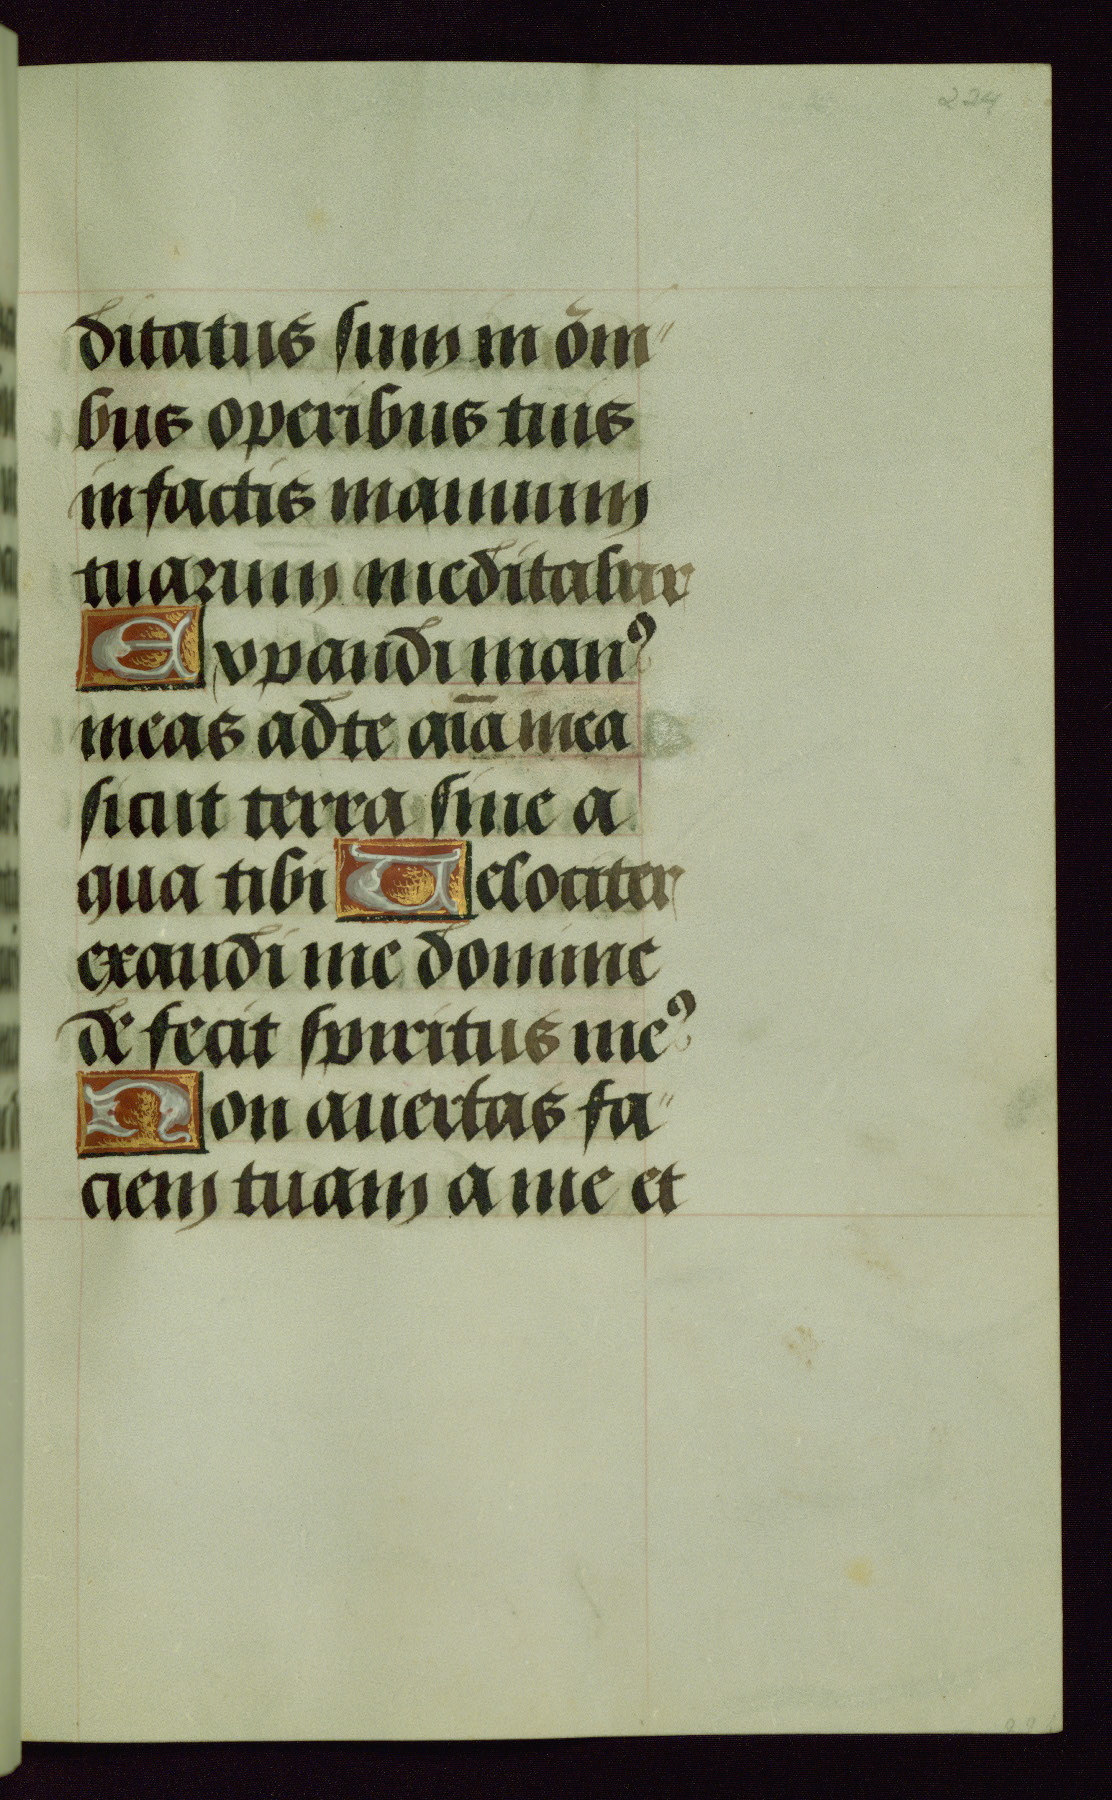 224
ditatus sum in om̄i"
bus operibus tuis
in factis manuum
tuarum meditabar
Expandi man⁹
meas ad te aīa mea
sicut terra sine a
qua tibi Velociter
exaudi me domine
de fecit spiritus me⁹
Non auertas fa"
ciem tuam a me et